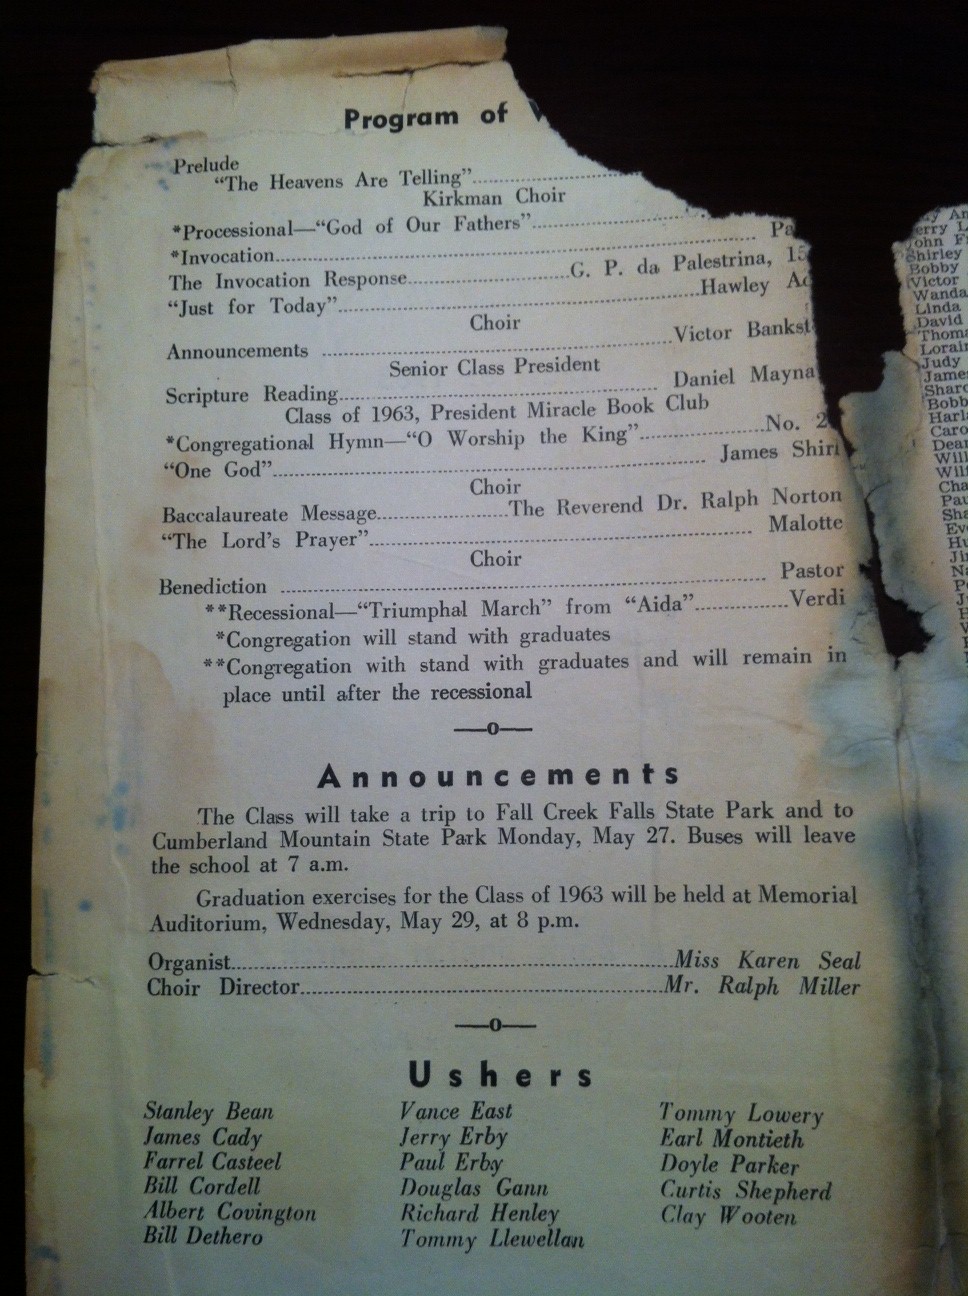 Program of
Prelude
"The Heavens Are Telling"
Kirkman Choir
*Processional—"God of Our Fathers"
*Invocation
The Invocation Response G. P. da Palestrina,
"Just for Today" Hawley
Choir
Announcements Victor
Senior Class President
Scripture Reading Daniel
Class of 1963, President Miracle Book Club
*Congregational Hymn—"O Worship the King" No.
"One God" James
Choir
Baccalaureate Message The Reverend Dr. Ralph Norton
"The Lord's Prayer" Malotte
Choir
Benediction Pastor
**Recessional—"Triumphal March" from "Aida" Verdi
*Congregation will stand with graduates
**Congregation with stand with graduates and will remain in
place until after the recessional
—o—
Announcements
The Class will take a trip to Fall Creek Falls State Park and to
Cumberland Mountain State Park Monday, May 27. Buses will leave
the school at 7 a.m.
Graduation exercises for the Class of 1963 will be held at Memorial
Auditorium, Wednesday, May 29, at 8 p.m.
Organist Miss Karen Seal
Choir Director Mr. Ralph Miller
—o—
Ushers
Stanley Bean
James Cady
Farrel Casteel
Bill Cordell
Albert Covington
Bill Dethero
Vance East
Jerry Erby
Paul Erby
Douglas Gann
Richard Henley
Tommy Llewellan
Tommy Lowery
Earl Montieth
Doyle Parker
Curtis Shepherd
Clay Wooten
John
Shirley
Bobby
Victor
Wanda
Linda
David
Judy